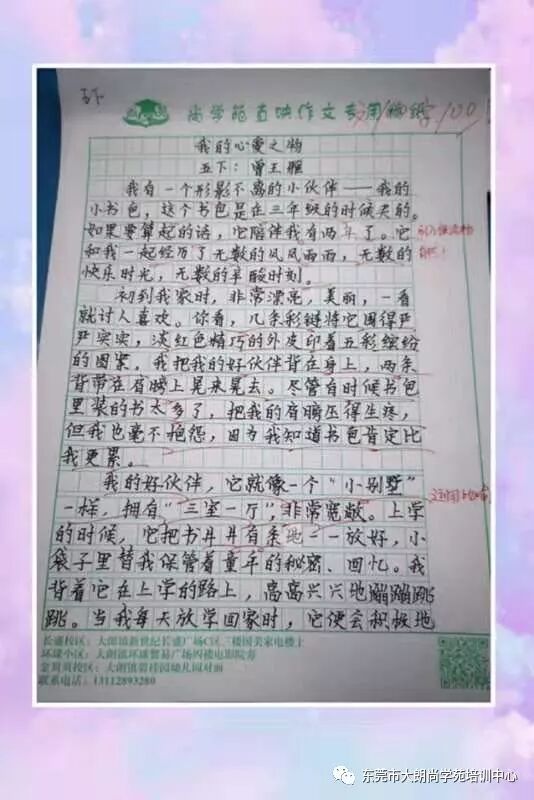 五下
尚学苑直映作文专用稿纸
100
我的心爱之物
五下：曾王雅
我有一个形影不离的小伙伴——我的
小书包，这个书包是在三年级的时候买的。
如果要算起的话，它陪伴我有两年了。它
和我一起经历了无数的风风雨雨，无数的
快乐时光，无数的辛酸时刻。
初到我家时，非常漂亮，美丽，一看
就讨人喜欢。你看，几条彩链将它围得严
严实实，淡红色精巧的外皮印着五彩缤纷
的图案。我把我的好伙伴背在身上，两条
背带在肩膀上晃来晃去。尽管有时候书包
里装的书太多了，把我的肩膀压得生疼，
但我也毫不抱怨，因为我知道书包肯定比
我更累。
我的好伙伴，它就像一个“小别墅”
一样，拥有“三室一厅”，非常宽敞。上学
的时候，它把书井井有条地一一放好，小
袋子里替我保管着童年的秘密、回忆。我
背着它在上学的路上，高高兴兴地蹦蹦跳
跳。当我每天放学回家时，它便会积极地
长盛校区：大朗镇新世纪长盛广场C区三楼国美家电楼上
环球小区：大朗镇环球贸易广场四楼电影院旁
金朗朗校区：大朗镇碧桂园幼儿园对面
联系电话：13112893280
东莞市大朗尚学苑培训中心